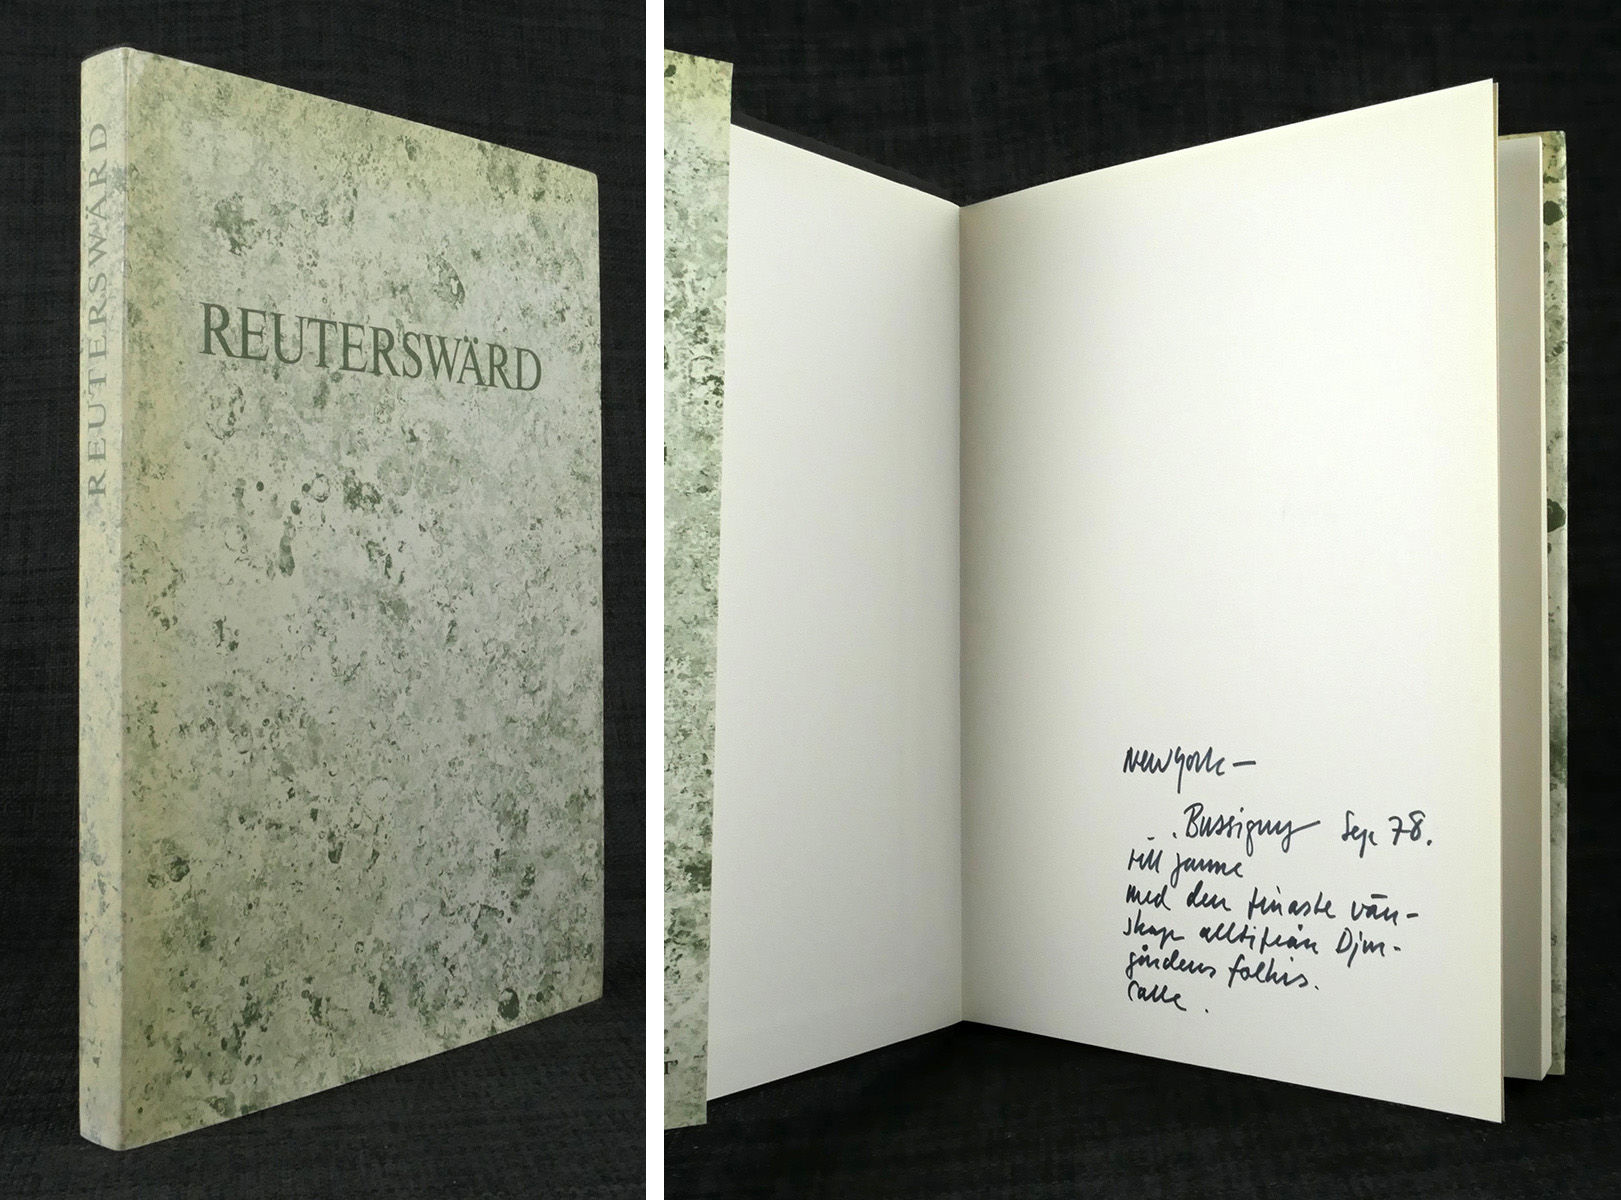 REUTERSWÄRD
REUTERSWÄRD
New York —
Bussigny Sep 78.
till Janne
med den finaste vän-
skap alltifrån Djur-
gårdens folkis.
Calle.